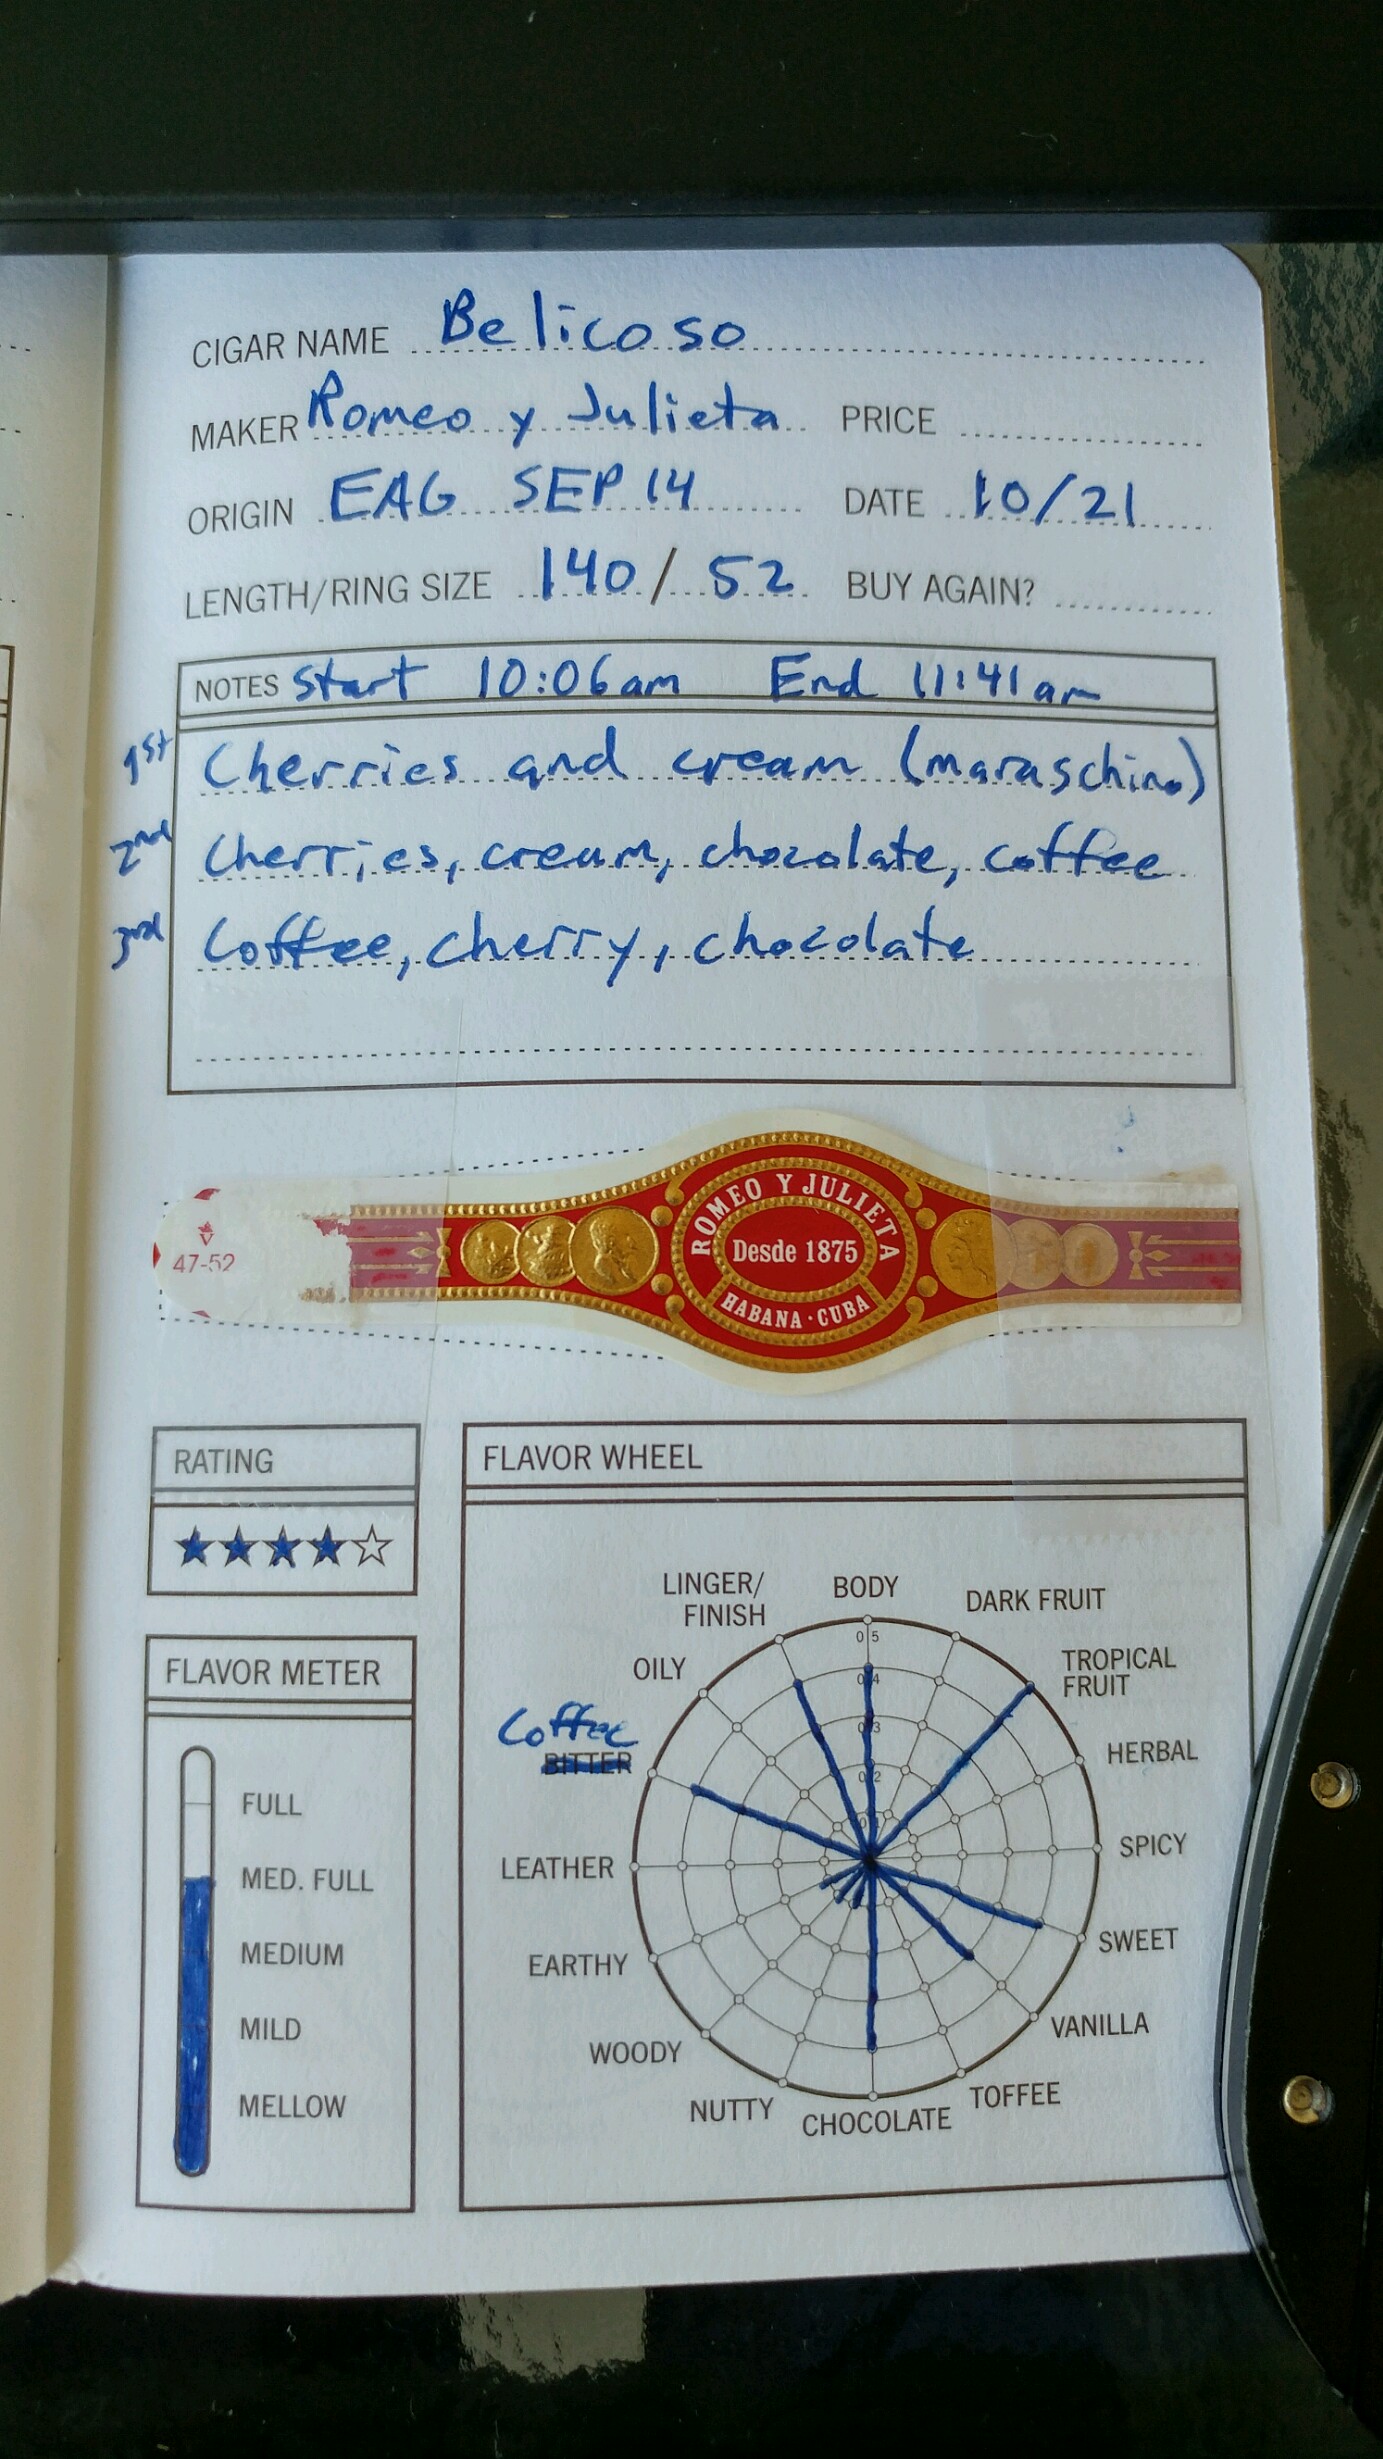 CIGAR NAME Belicoso
MAKER Romeo y Julieta PRICE
ORIGIN EAG SEP 14 DATE 10/21
LENGTH/RING SIZE 140 / 52 BUY AGAIN?
NOTES Start 10:06am End 11:41am
1st Cherries and cream (maraschino)
2nd Cherries, cream, chocolate, coffee
3rd Coffee, cherry, chocolate
47-52
ROMEO Y JULIETA
Desde 1875
HABANA · CUBA
RATING
FLAVOR METER
FULL
MED. FULL
MEDIUM
MILD
MELLOW
FLAVOR WHEEL
BODY
DARK FRUIT
TROPICAL
FRUIT
HERBAL
SPICY
SWEET
VANILLA
TOFFEE
CHOCOLATE
NUTTY
WOODY
EARTHY
LEATHER
Coffee
BITTER
OILY
LINGER/
FINISH
0 5
0 4
0 3
0 2